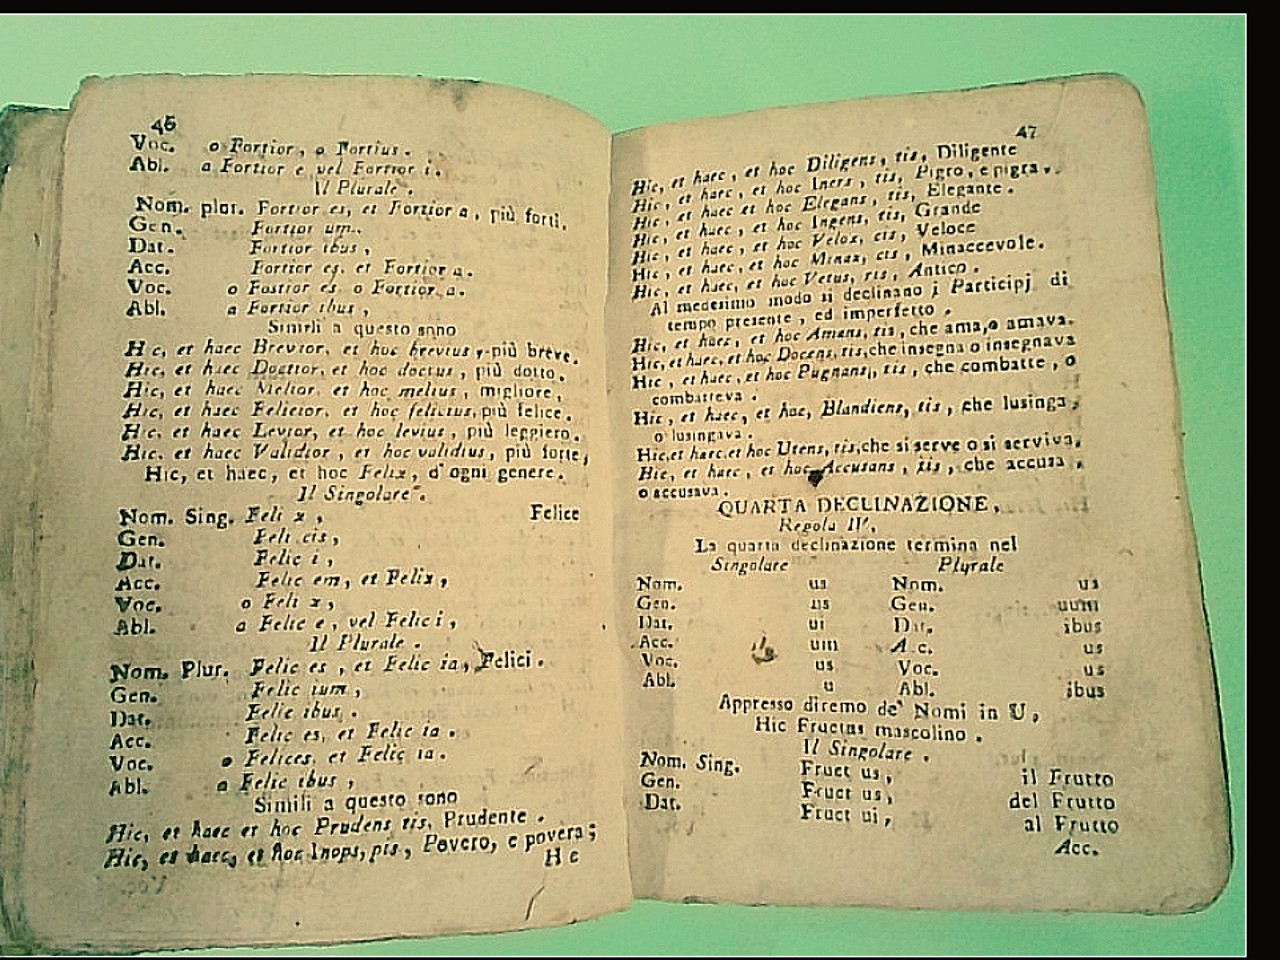 46
Voc. o Fortior, o Fortius.
Abl. a Fortior e vel Fortior i.
Il Plurale.
Nom. plur. Fortior es, et Fortior a, più forti.
Gen. Fortior um.
Dat. Fortior ibus,
Acc. Fortior es. et Fortior a.
Voc. o Fortior es o Fortior a.
Abl. a Fortior ibus,
Simili a questo sono
H c, et haec Brevior, et hoc brevius, più breve.
Hic, et haec Doctior, et hoc doctus, più dotto.
Hic, et haec Melior, et hoc melius, migliore,
Hic, et haec Felicior, et hoc felicius, più felice.
Hic, et haec Levior, et hoc levius, più leggiero.
Hic, et haec Validior, et hoc validius, più forte,
Hic, et haec, et hoc Felix, d' ogni genere.
Il Singolare.
Nom. Sing. Feli x, Felice
Gen. Feli cis,
Dat. Felic i,
Acc. Felic em, et Felix,
Voc. o Feli x,
Abl. a Felic e, vel Felic i,
Il Plurale.
Nom. Plur. Felic es, et Felic ia, Felici.
Gen. Felic ium,
Dat. Felic ibus.
Acc. Felic es, et Felic ia.
Voc. o Felices, et Felic ia.
Abl. a Felic ibus,
Simili a questo sono
Hic, et haec et hoc Prudens tis, Prudente.
Hic, et haec, et hoc Inops, pis, Povero, e povera;
H c
47
Hic, et haec, et hoc Diligens, tis, Diligente
Hic, et haec, et hoc Iners, tis, Pigro, e pigra.
Hic, et haec et hoc Elegans, tis, Elegante.
Hic, et haec, et hoc Ingens, tis, Grande
Hic, et haec, et hoc Velox, cis, Veloce
Hic, et haec, et hoc Minax, cis, Minaccevole.
Hic, et haec, et hoc Vetus, ris, Antico.
Al medesimo modo si declinano i Participj di
tempo presente, ed imperfetto.
Hic, et haec, et hoc Amans, tis, che ama, o amava.
Hic, et haec, et hoc Docens, tis, che insegna o insegnava
Hic, et haec, et hoc Pugnans, tis, che combatte, o
combatteva.
Hic, et haec, et hoc, Blandiens, tis, che lusinga,
o lusingava.
Hic, et haec, et hoc Utens, tis, che si serve o si serviva,
Hic, et haec, et hoc Accusans, tis, che accusa,
o accusava.
QUARTA DECLINAZIONE,
Regola IV,
La quarta declinazione termina nel
Singolare Plurale
Nom. us Nom. us
Gen. us Gen. uum
Dat. ui Dat. ibus
Acc. um A c. us
Voc. us Voc. us
Abl. u Abl. ibus
Appresso diremo de' Nomi in U,
Hic Fructus mascolino.
Il Singolare.
Nom. Sing. Fruct us, il Frutto
Gen. Fruct us, del Frutto
Dat. Fruct ui, al Frutto
Acc.